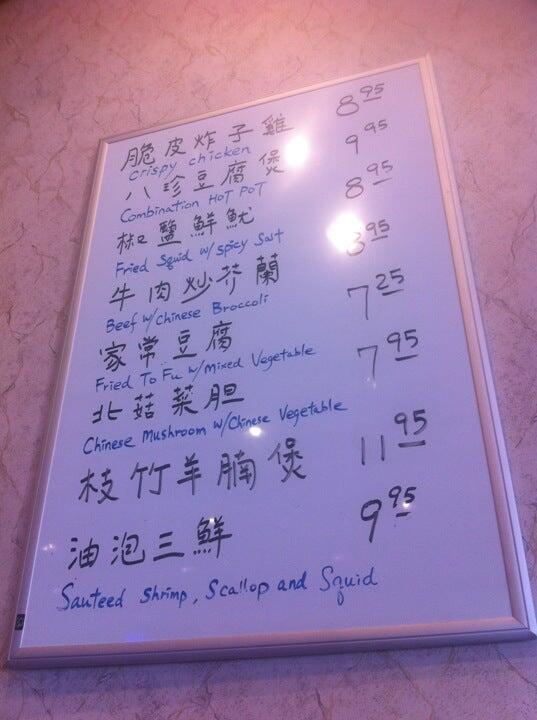 脆皮炸子雞 8.95
crispy chicken
八珍豆腐煲 9.95
Combination HOT POT
椒鹽鮮魷 8.95
Fried Squid w/ spicy Salt
牛肉炒芥蘭 8.95
Beef w/Chinese Broccoli
家常豆腐 7.25
Fried To Fu w/Mixed Vegetable
北菇菜胆 7.95
Chinese Mushroom w/Chinese Vegetable
枝竹羊腩煲 11.95
油泡三鮮 9.95
Sauteed shrimp, Scallop and Squid